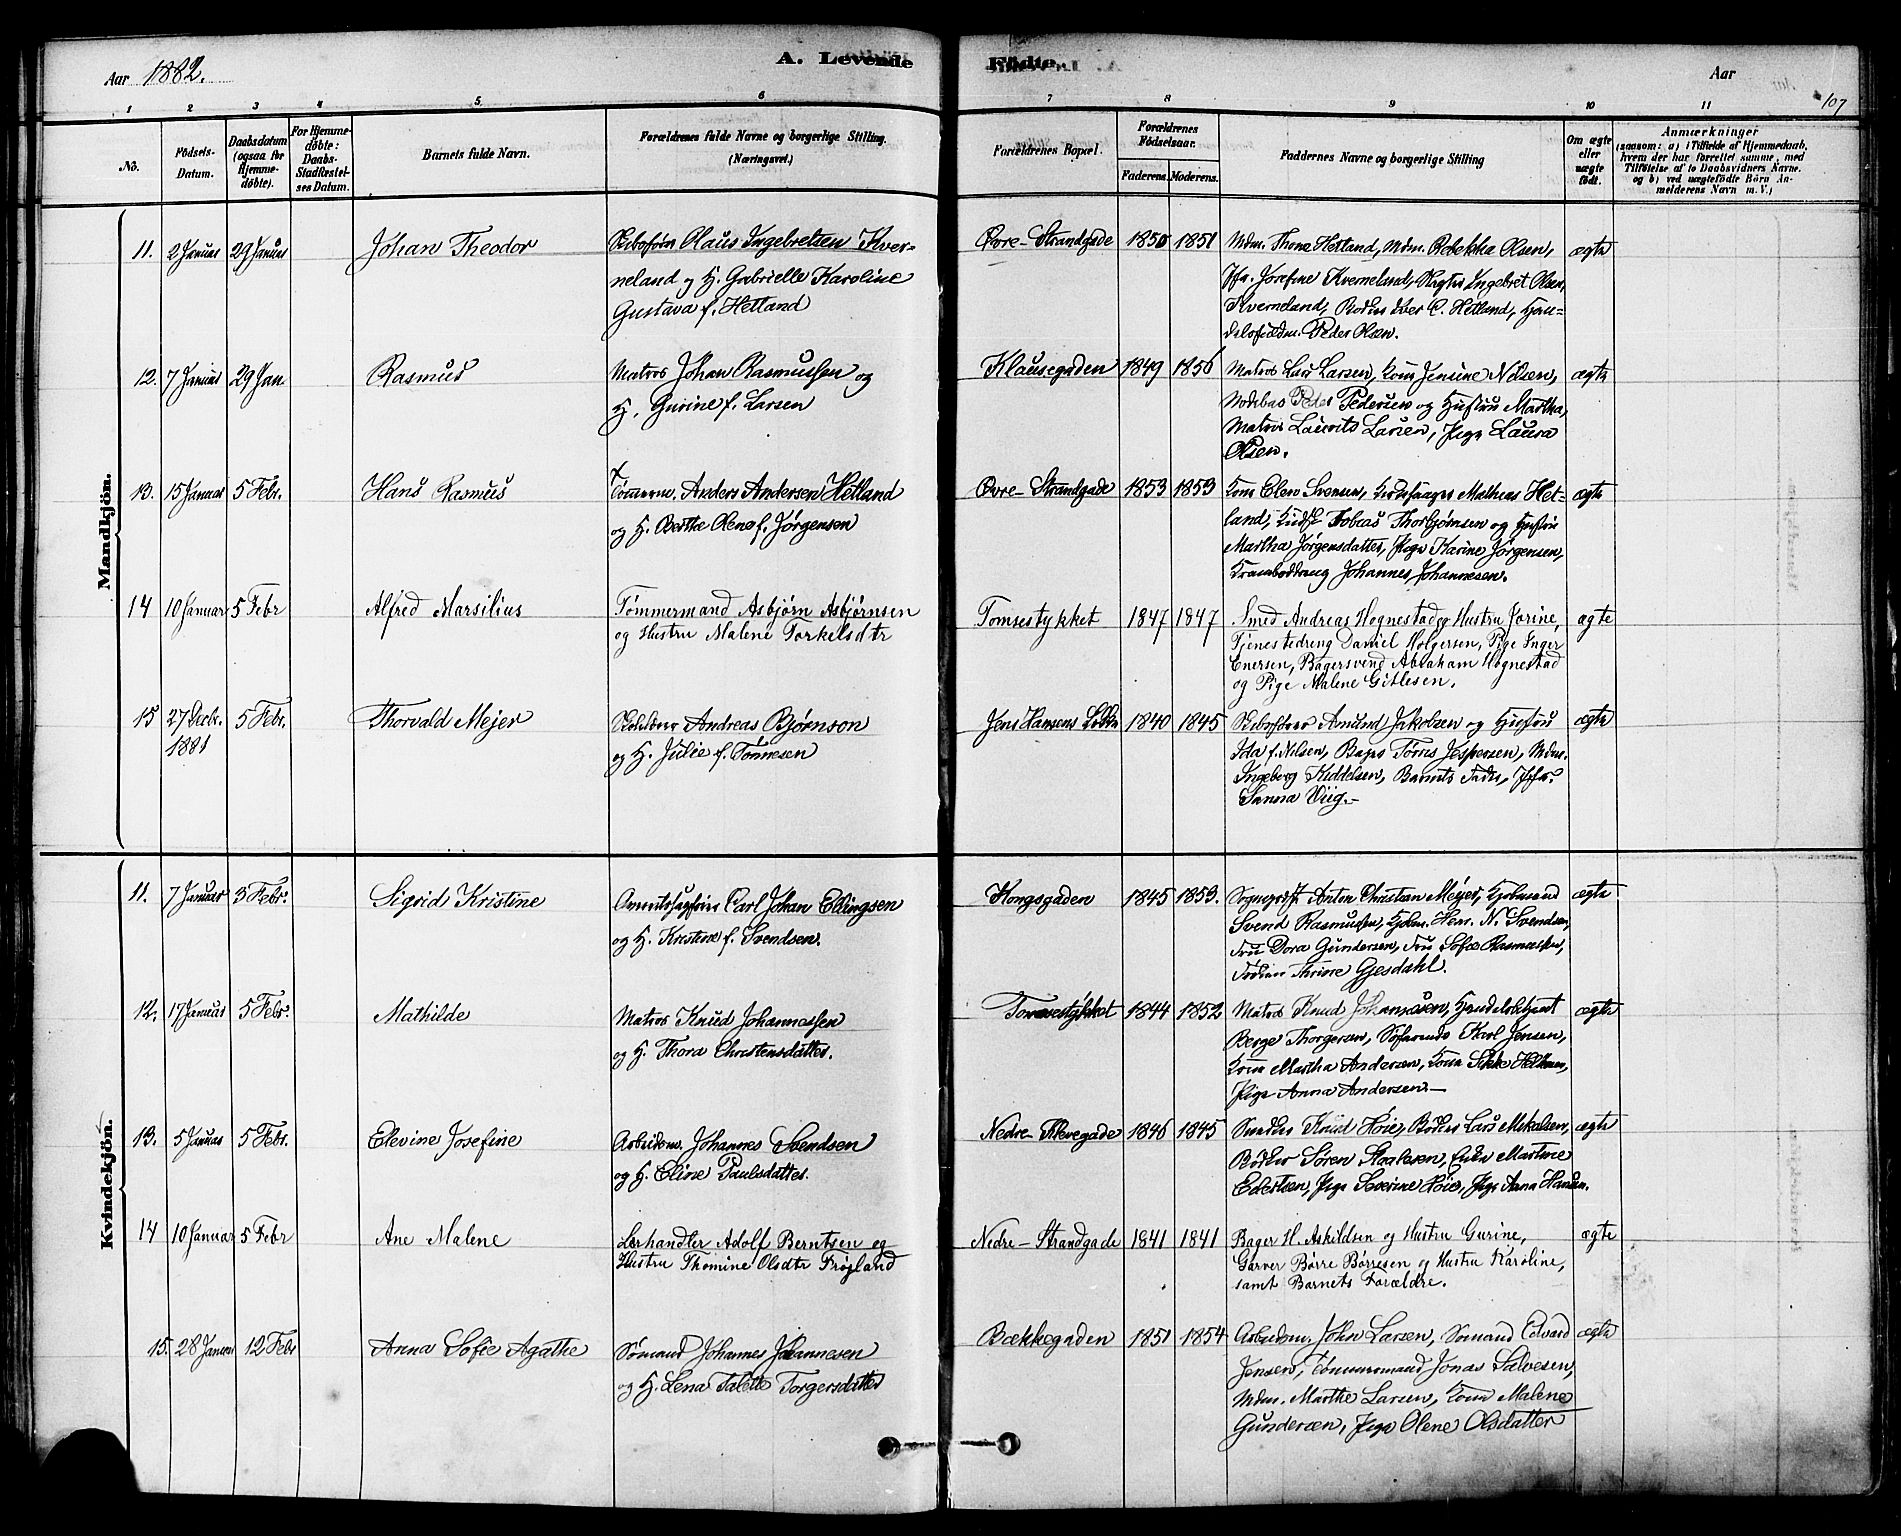 Aar 1882.
A. Levende Fødte.
Aar
107
1 2 3 4 5 6 7 8 9 10 11
No.
Fødsels-Datum.
Daabsdatum (ogsaa for Hjemme-døbte).
For Hjemme-døbte: Daabs-Stadfæstel-ses Datum.
Barnets fulde Navn.
Forældrenes fulde Navne og borgerlige Stilling. (Næringsvei.)
Forældrenes Bopæl.
Forældrenes Fødselsaar.
Faderens. Moderens.
Faddernes Navne og borgerlige Stilling
Om ægte eller uægte født.
Anmærkninger
(saasom: a) i Tilfælde af Hjemmedaab, hvem der har forrettet samme, med Tilføielse af to Daabsvidners Navne, og b) ved uægtefødte Børn An-melderens Navn m. V.)
Mandkjøn.
11. 2 Januar 29 Januar Johan Theodor Olaus Ingebretsen Kver- Øvre-Strandgade 1850 1851 Mdm. Thone Hetland, Mdm. Rebekka Olsen, ægte
neland og H. Gabrielle Karoline Jfr. Josefine Kverneland, Ingebret Olsen
Gustava f. Hetland Kverneland, C. Hetland,
Peder Olsen.
12. 7 Januar 29 Jan. Rasmus Matros Johan Rasmussen og Klausegaden 1849 1856 Matros Lars Larsen, Kone Jensine Nilsen, ægte
H. Gurine f. Larsen Peder Pedersen og Hustru Martha,
Matros Laurits Larsen, Pige Laura
Olsen.
13. 15 Januar 5 Febr. Hans Rasmus Tømmerm. Anders Andersen Hetland Øvre-Strandgade 1853 1853 Kone Elen Svensen, Mathias Het- ægte
og H. Berthe Olene f. Jørgensen land, Tobias Thorbjørnsen og Hustru
Martha Jørgensdatter, Pige Karine Jørgensen,
Johannes Johannesen.
14 10 Januar 5 Febr Alfred Marsilius Tømmermand Asbjørn Asbjørnsen Tomsestykket 1847 1847 Smed Andreas Hognestad og Hustru Jorine, ægte
og Hustru Malene Torkelsdtr Tjenestedreng Daniel Holgersen, Pige Inger
Enersen, Bagersvend Abraham Hognestad
og Pige Malene Gitlesen.
15 27 Decbr. 5 Febr. Thorvald Mejer Andreas Bjørnson Jens Hansens 1840 1845 Anund Jakobsen og Hustru ægte
1881 og H. Julie f. Tønnesen Ida f. Nilsen, Bager Tørres Jespersen, Mdm.
Ingeborg Kiddelsen, Barnets Fader, Jfr.
Sanna Viig.-
Kvindekjøn.
11. 7 Januar 3 Febr. Sigrid Kristine Carl Johan Ellingsen Kongsgaden 1845 1853. Sogneprst. Anton Christian Meyer, Kjøbmand ægte
og H. Kristine f. Svendsen. Svend Rasmussen, Kjøbm. Herr. N. Svendsen,
Fru Dora Gundersen, Fru Sofie Rasmussen,
Gjesdahl.
12. 17 Januar 5 Febr. Mathilde Matros Knud Johannessen Tomsestykket 1844 1852 Matros Knud Johannesen, Handelsbetjent ægte
og H. Thora Christensdatter. Berge Thorgersen, Søfarende Karl Jensen,
Kone Martha Andersen, Kone
Pige Anna Andersen.-
13. 5 Januar 5 Febr. Elevine Josefine Arbeidsm. Johannes Svendsen Nedre- 1846 1845 Knud Høie, Bødker Lars Mikalsen, ægte
og H. Eline Paulsdatter. Bødker Søren Staalesen, Enke Martine
Pige Severine Høie, Pige Anna Hansen.
14 10 Januar 5 Febr Ane Malene Lerhandler Adolf Berntsen og Nedre-Strandgade 1841 1841 Bager H. Askildsen og Hustru Gurine, ægte
Hustru Thomine Olsdtr Frøjland Garver Børre Børresen og Hustru Karoline,
samt Barnets Forældre.
15. 28 Januar 12 Febr Anna Sofie Agathe Sømand Johannes Johannesen Bækkegaden 1851 1854 Arbeidsm. John Larsen, Sømand Edvard ægte
og H. Lena Talette Torgersdatter Jensen, Tømmermand Jonas Salvesen,
Mdm. Marthe Larsen, Kone Malene
Gundersen, Pige Olene Olsdatter